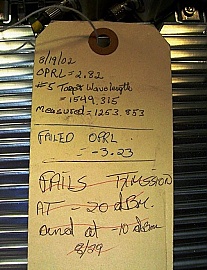 8/19/02
OPRL = 2.82
#5 Target Wavelength
= 1549.315
Measured = 1253.853
FAILED OPRL
= -3.23
FAILS T/MISSION
AT - 20 dBm.
and at -10 dBm
8/29